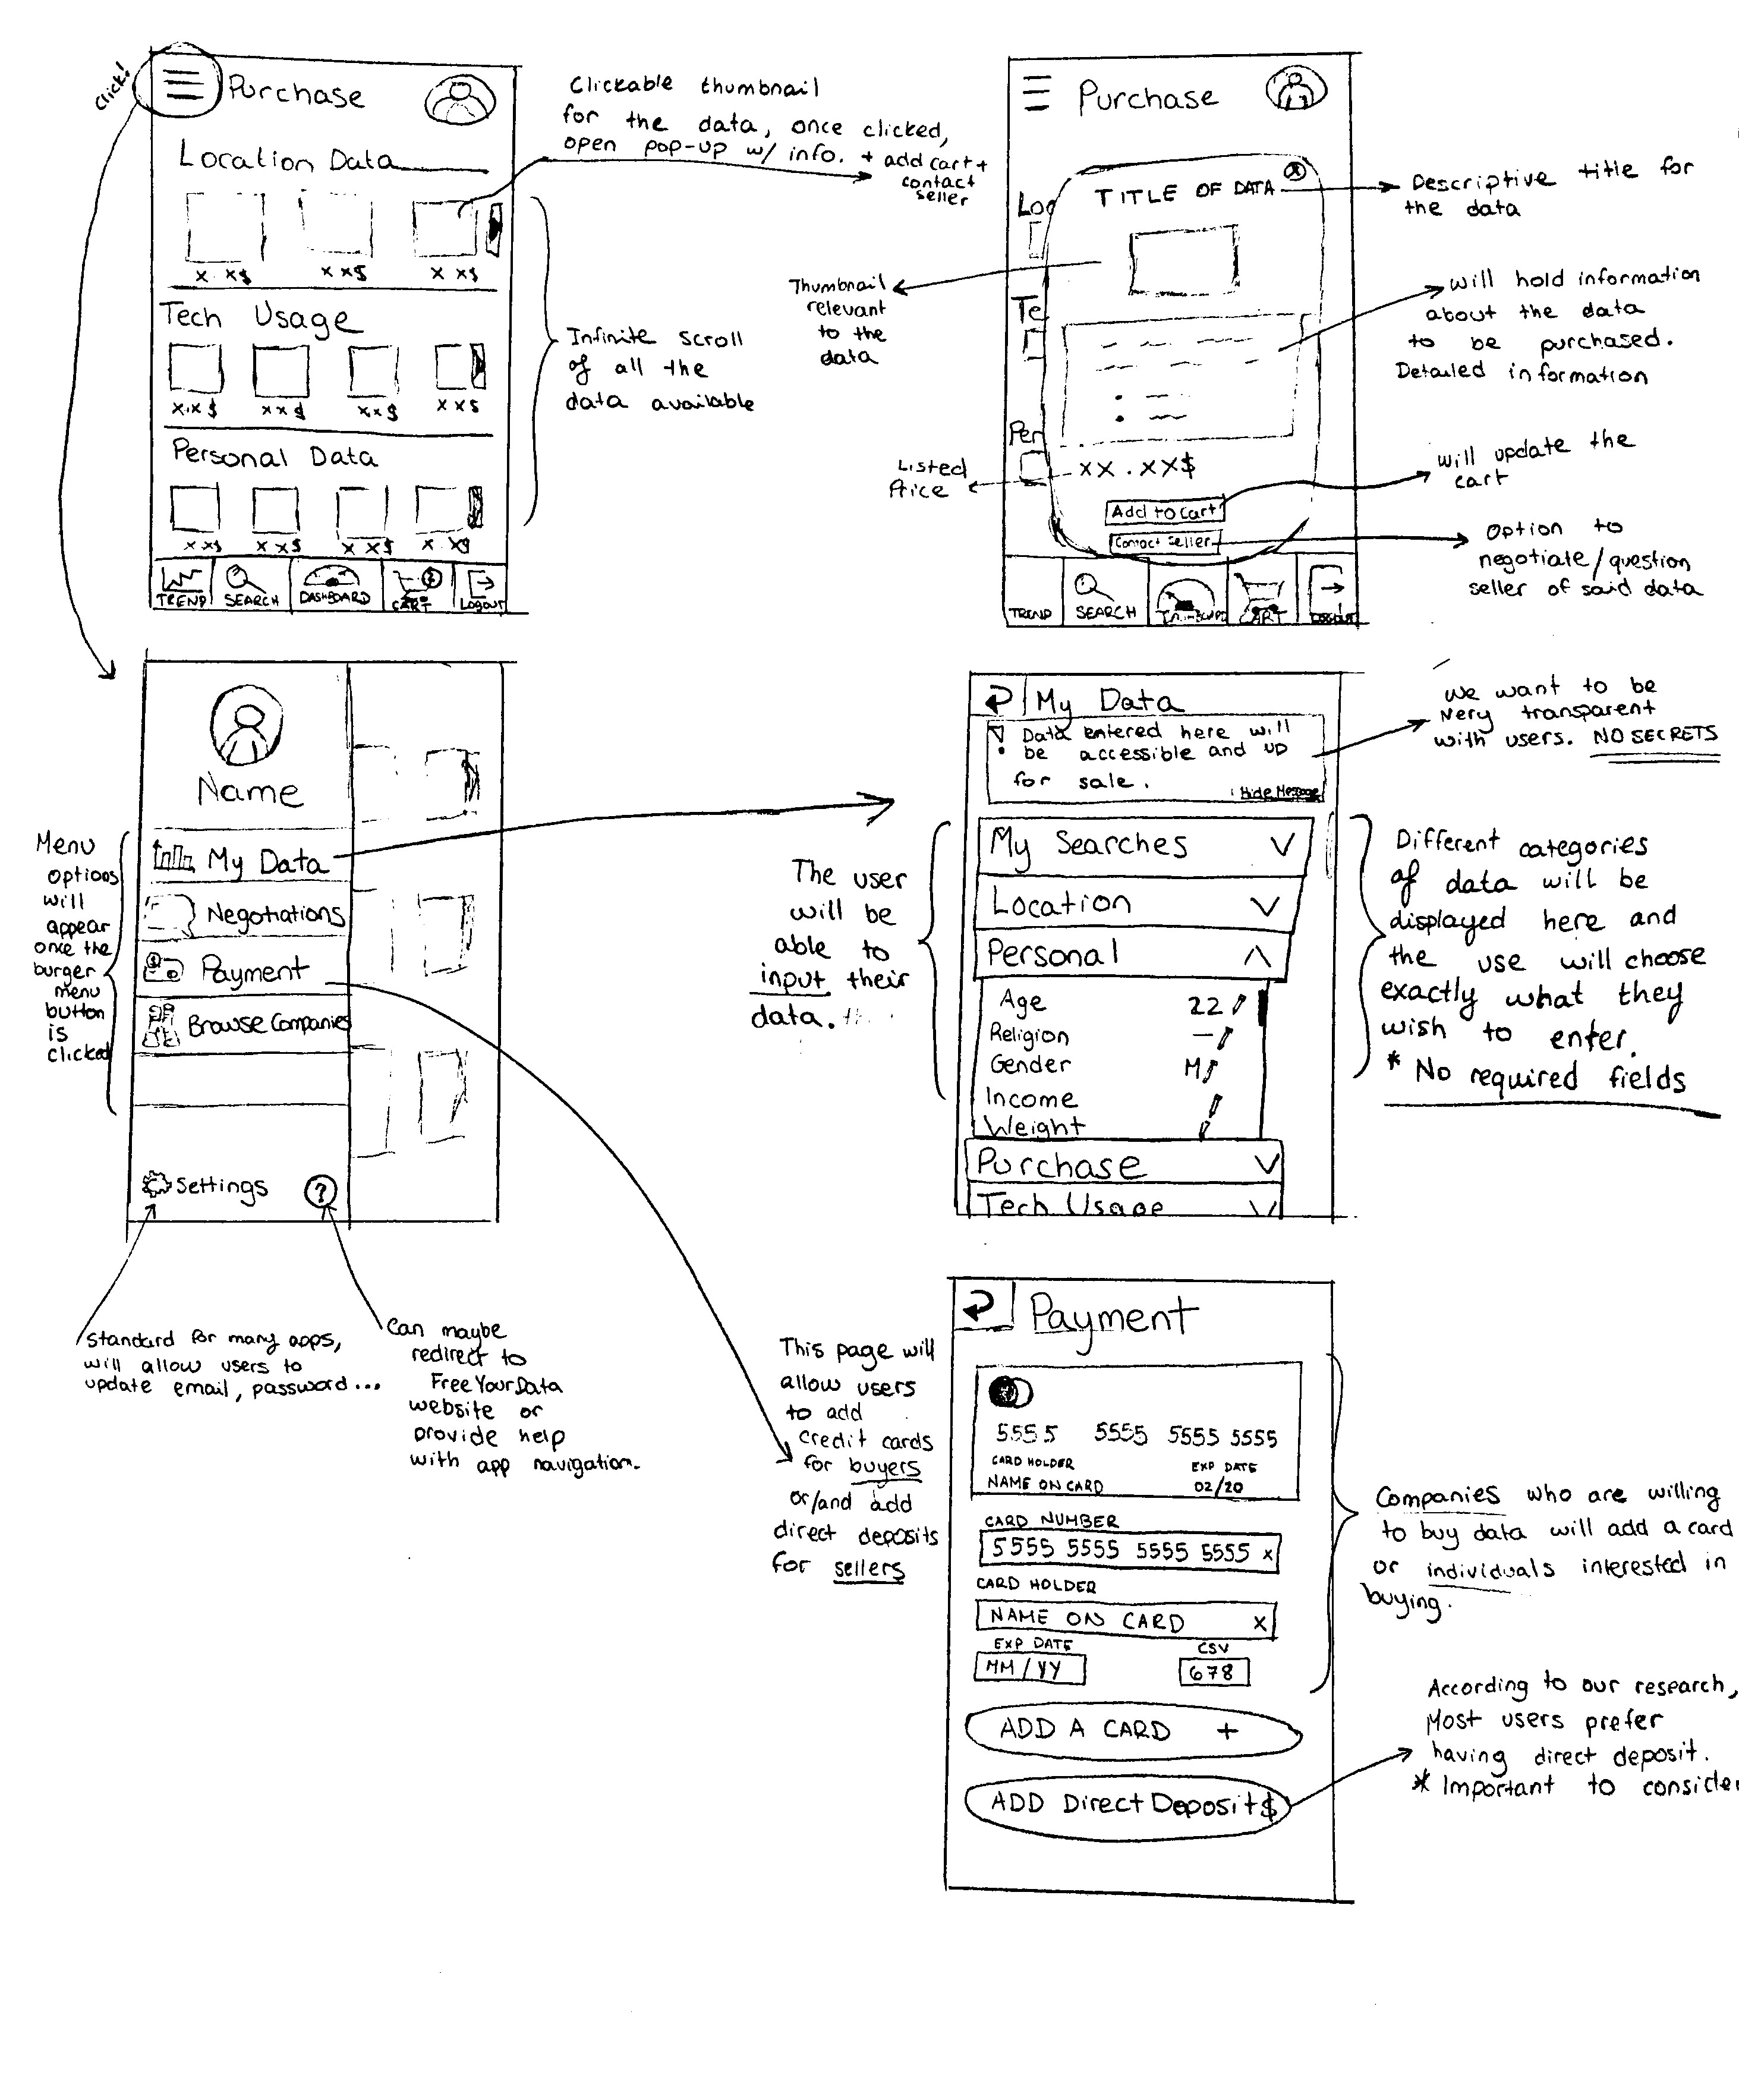 click!
Purchase
Location Data
x xx$
x x$
x x$
Tech Usage
xx$
xx$
xx$
xx$
Personal Data
xx$
xx$
xx$
x x$
TREND
SEARCH
DASHBOARD
CART
Logout
Clickable thumbnail
for the data, once clicked,
open pop-up w/ info. + add cart +
contact
seller
Infinite scroll
of all the
data available
Purchase
Loc
Te
Per
TITLE OF DATA
x
xx.xx$
Add to cart
Contact seller
TREND
SEARCH
CART
Logout
Descriptive title for
the data
Thumbnail
relevant
to the
data
will hold information
about the data
to be purchased.
Detailed information
Listed
Price
will update the
cart
Option to
negotiate/question
seller of said data
Name
My Data
Negotiations
Payment
Browse Companies
Settings
?
Menu
options
will
appear
once the
burger
menu
button
is
clicked
Standard for many apps,
will allow users to
update email, password...
Can maybe
redirect to
FreeYourData
website or
provide help
with app navigation.
My Data
! Data entered here will
be accessible and up
for sale.
Hide Message
My Searches
Location
Personal
Age 22
Religion —
Gender M
Income
Weight
Purchase
Tech Usage
We want to be
very transparent
with users. NO SECRETS
The user
will be
able to
input their
data.
Different categories
of data will be
displayed here and
the use will choose
exactly what they
wish to enter.
* No required fields
This page will
allow users
to add
credit cards
for buyers
or/and add
direct deposits
for sellers
Payment
5555 5555 5555 5555
CARD HOLDER EXP DATE
NAME ON CARD 02/20
CARD NUMBER
5555 5555 5555 5555 x
CARD HOLDER
NAME ON CARD x
EXP DATE CSV
MM/YY 678
ADD A CARD +
ADD Direct Deposit $
Companies who are willing
to buy data will add a card
or individuals interested in
buying.
According to our research,
Most users prefer
having direct deposit.
* Important to consider